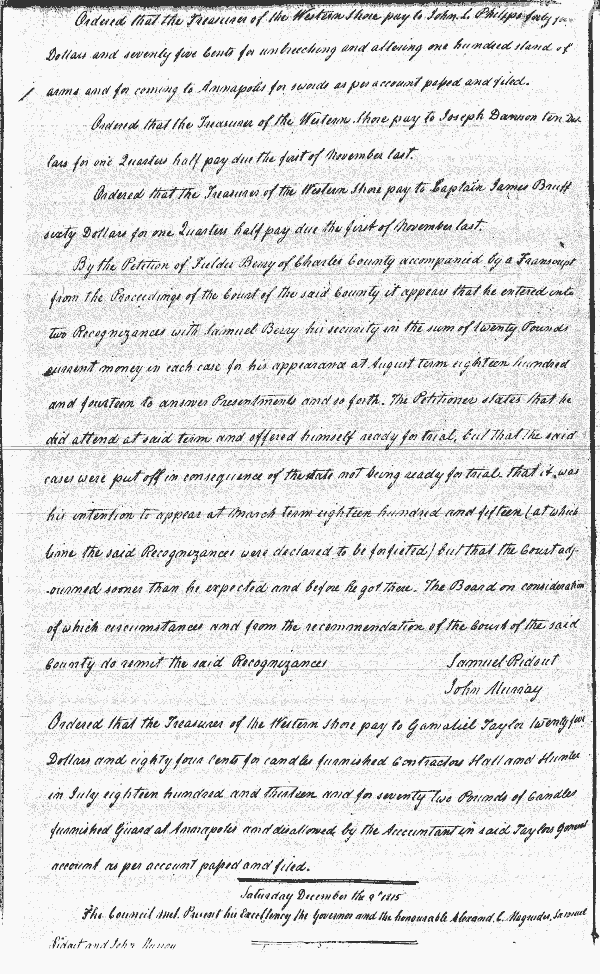 Ordered that the Treasurer of the Western Shore pay to John L. Philips forty
Dollars and seventy five Cents for unbreeching and altering one hundred stand of
arms and for coming to Annapolis for swords as per account passed and filed.
Ordered that the Treasurer of the Western Shore pay to Joseph Dawson ten Dol-
lars for one Quarters half pay due the first of November last.
Ordered that the Treasurer of the Western Shore pay to Captain James Bruff
sixty Dollars for one Quarters half pay due the first of November last.
By the Petition of Fielder Berry of Charles County accompanied by a Transcript
from the Proceedings of the Court of the said County it appears that he entered into
two Recognizances with Samuel Berry his security in the sum of twenty Pounds
current money in each case for his appearance at August term eighteen hundred
and fourteen to answer Presentments and so forth. The Petitioner states that he
did attend at said term and offered himself ready for trial, but that the said
cases were put off in consequence of the state not being ready for trial. that it was
his intention to appear at March term eighteen hundred and fifteen (at which
time the said Recognizances were declared to be forfieted) but that the Court adj-
-ourned sooner than he expected and before he got there. The Board on consideration
of which circumstances and from the recommendation of the Court of the said
County do remit the said Recognizances
Samuel Ridout
John Murray
Ordered that the Treasurer of the Western Shore pay to Gamaliel Taylor twenty four
Dollars and eighty four Cents for candles furnished Contractors Hall and Hunter
in July eighteen hundred and thirteen and for seventy two Pounds of Candles
furnished Guard at Annapolis and disallowed by the Accountant in said Taylors General
account as per account passed and filed.
Saturday December the 9th 1815
The Council met. Present his Excellency the Governor and the honourable Alexand. C. Magruder, Samuel
Ridout and John Murray